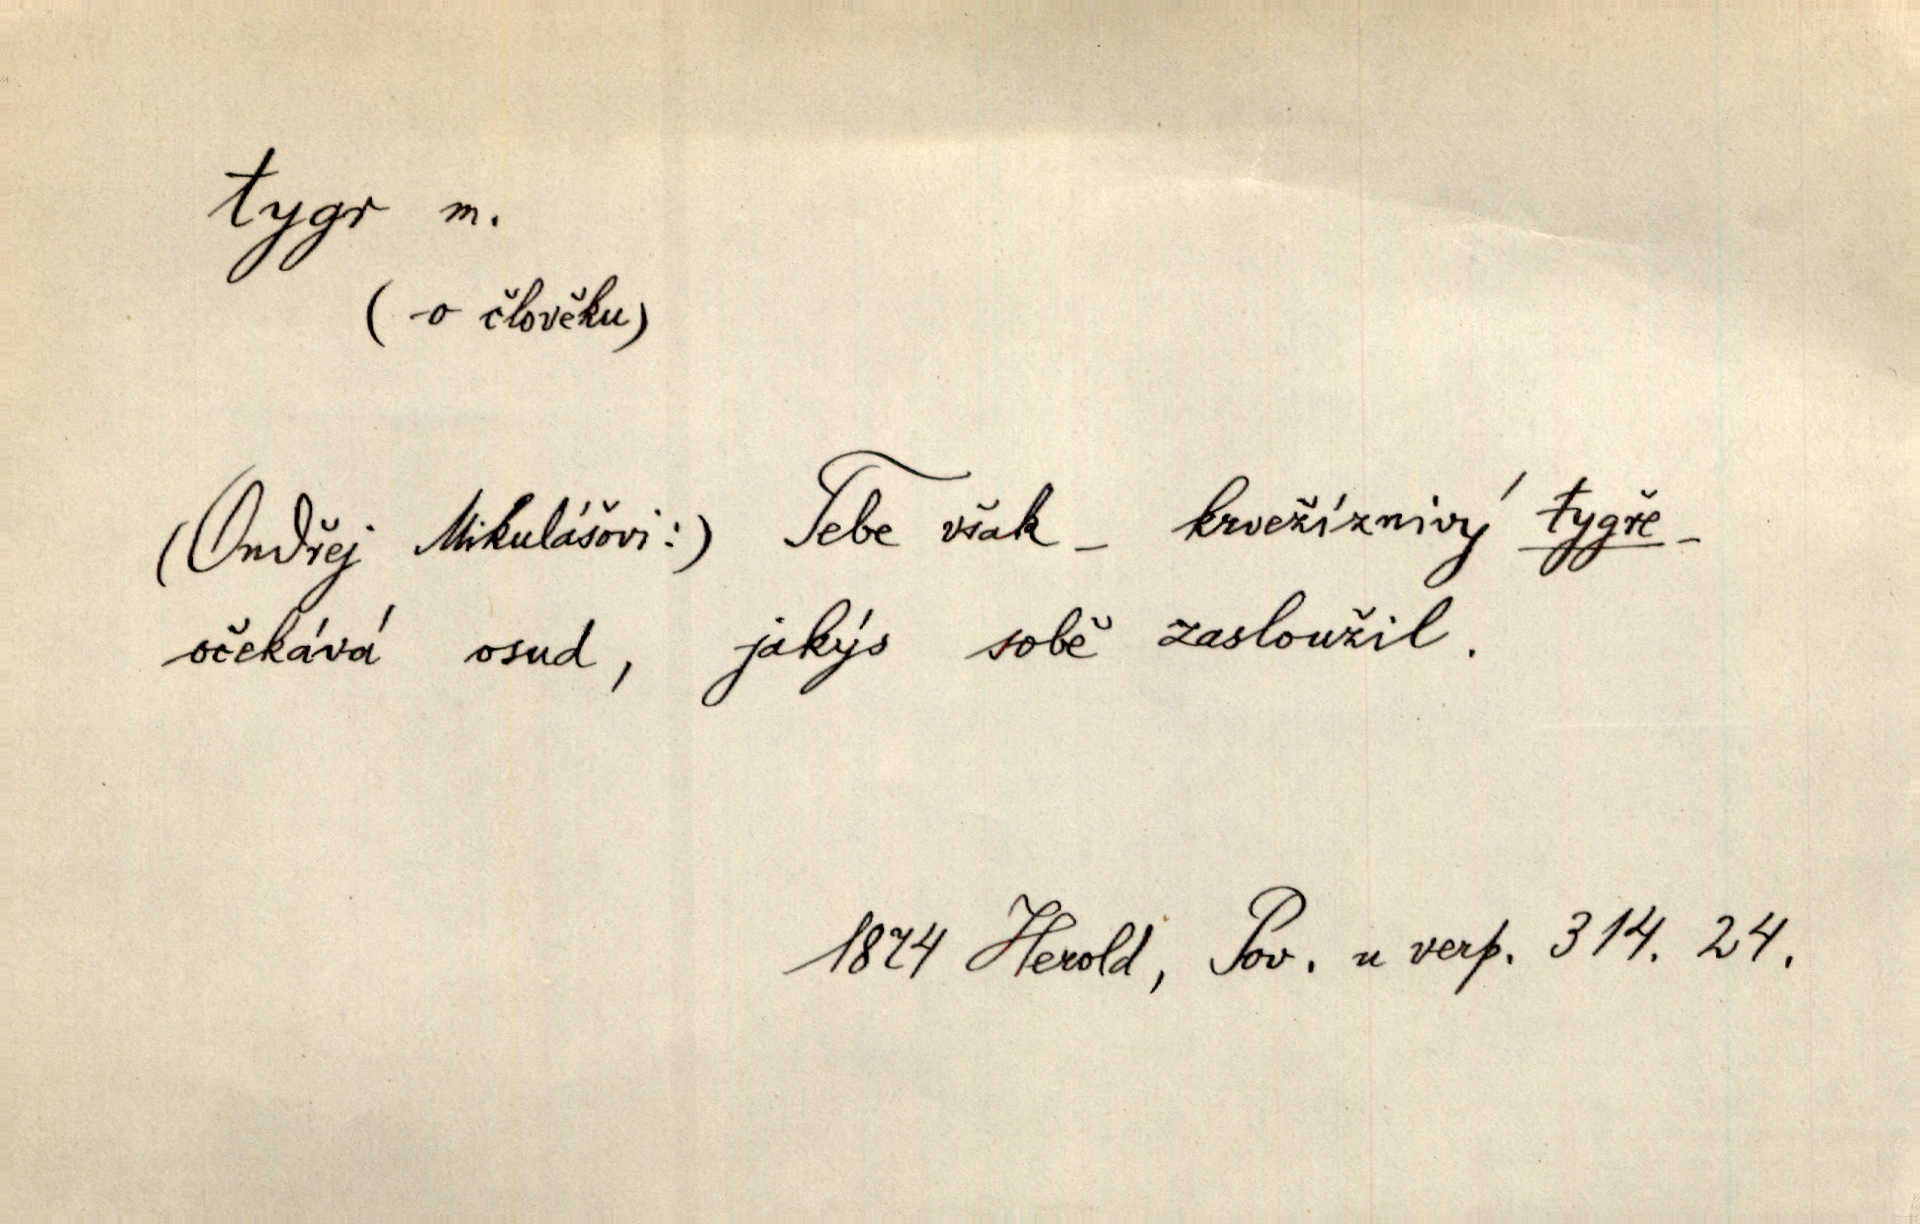 tygr m.
(o člověku)
(Ondřej Mikulášovi:) Tebe však – krvežíznivý tygře –
očekává osud, jakýs sobě zasloužil.
1874 Herold, Pov. u verp. 314. 24.